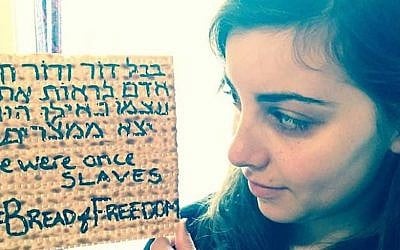 בכל דור ודור
אדם לראות את
עצמו כאילו
יצא ממצרים
were once
SLAVES
#BREADofFREEDOM